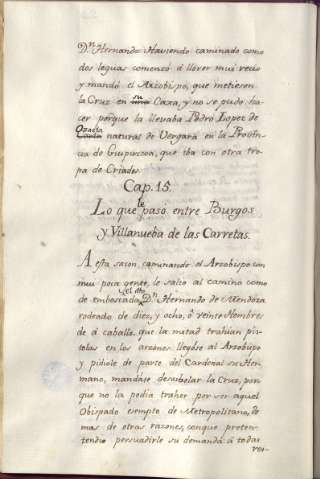 Dⁿ. Hernando Haviendo caminado como
dos leguas comenzó á llover mui recio
y mandó el Arzobispo, que metiesen
la Cruz en su Caxa, y no se pudo ha-
cer porque la llevaba Pedro Lopez de
Ozaeta
natural de Vergara en la Provin-
cia de Guipuzcoa, que iba con otra tro-
pa de Criados.
Cap. 15.
le
Lo que pasó entre Burgos
y Villanueba de las Carretas.
A esta sazon, caminando el Arzobispo con
mui poca gente, le salió al camino como
el dho
de emboscada, Dⁿ. Hernando de Mendoza
rodeado de diez, y ocho, ó veinte Hombres
de á caballo, que la metad trahían pis-
tolas en los arzones. llegóse al Arzobispo
y pidiole de parte del Cardenal su Her-
mano, mandase desarbolar la Cruz, por-
que no la podia traher por ser aquel
Obispado esempto de Metropolitano, de
mas de otras razones, con que preten-
tendio persuadirle su demanda á todas